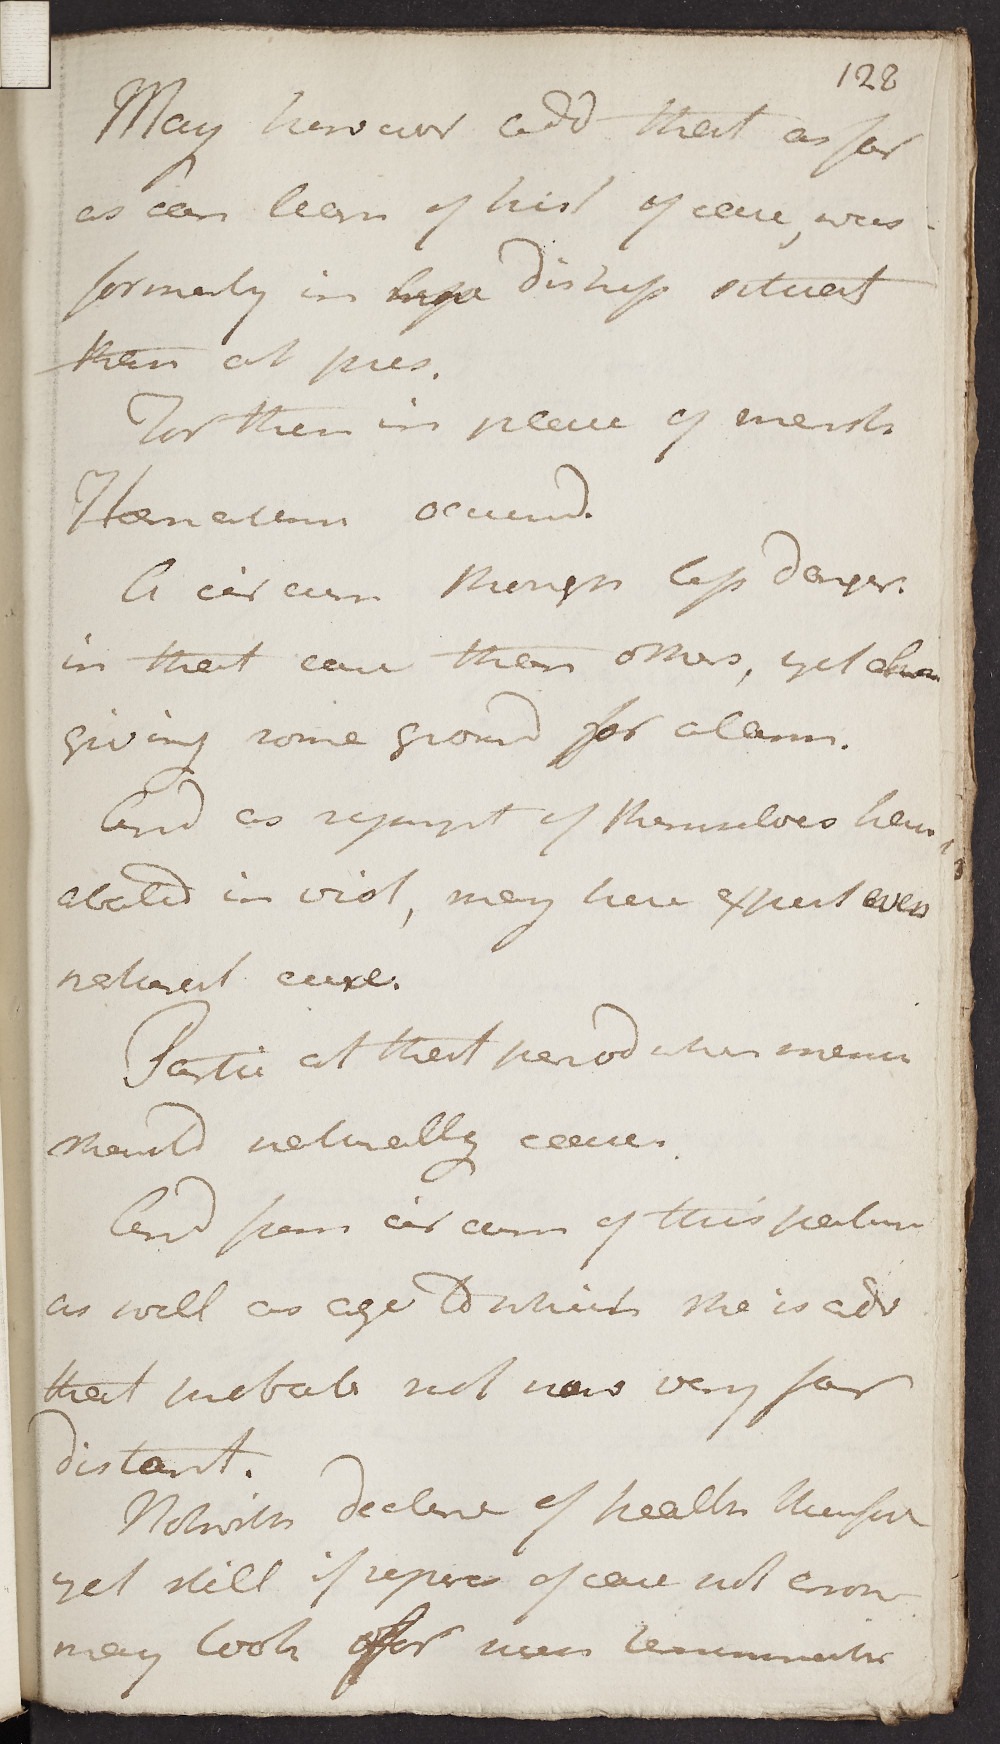 128
May however add that as far
as can learn of hist of case, was
formerly in more distress situat
than at pres.
For then in place of mensts
Hematem occurred.
A circum though less danger.
in that case than others, yet
giving some ground for alarm.
And as repurgt of themselves have
abated in viol, may here expect even
naturat cure.
Partic at that period when mens
should naturally cease.
And from circum of this patien
as well as age to which she is adv
that probab not now very far
distant.
Notwith decline of health therefore
yet still if of case not erron
may look for terminatn